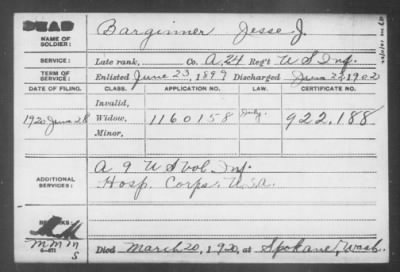 DEAD
NAME OF SOLDIER: Barginner Jesse J.
SERVICE: Late rank, Co. A, 24 Reg't U S Inf.
TERM OF SERVICE: Enlisted June 23, 1899 Discharged June 22, 1902
DATE OF FILING. CLASS. APPLICATION NO. LAW. CERTIFICATE NO.
Invalid,
1920 June 28 Widow, 1160158 922,188.
Minor,
ADDITIONAL SERVICES: A 9 U S Vol. Inf.
Hosp. Corps. U.S.A.
REMARKS:
MMM
S
Died March 20, 1920, at Spokane, Wash.